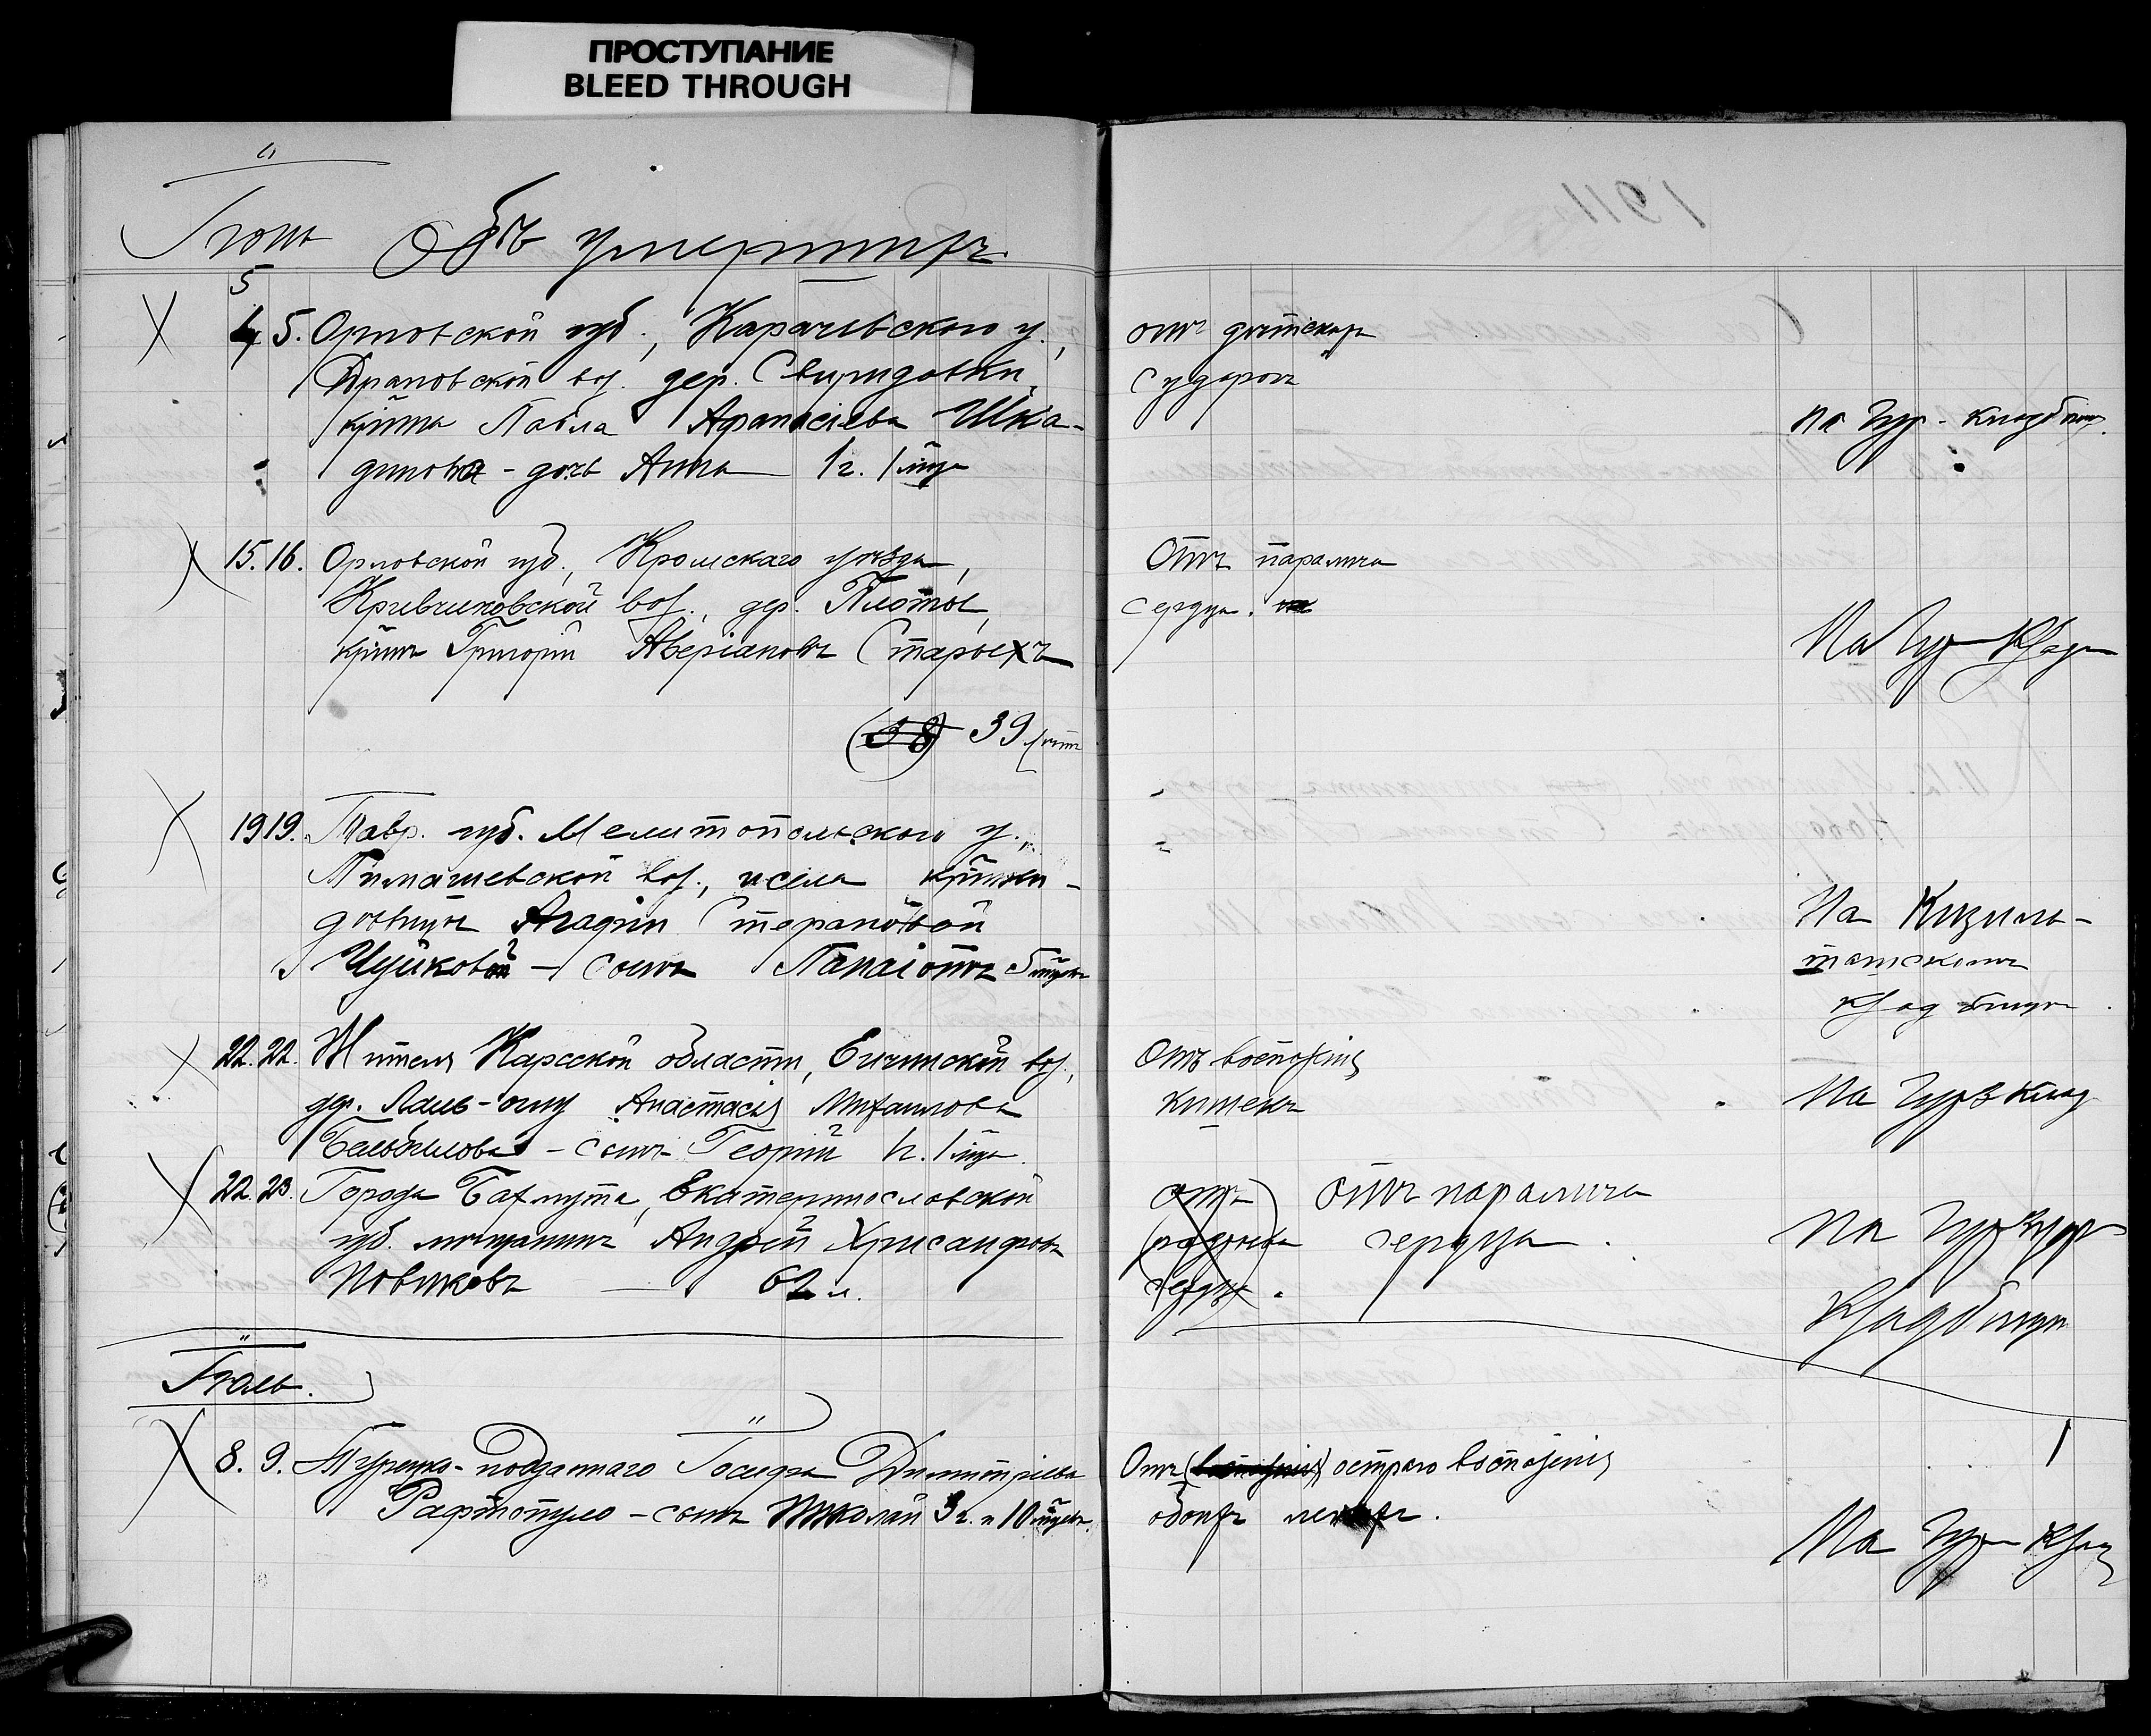 ПРОСТУПАНИЕ
BLEED THROUGH
Іюнь Объ умершихъ
5
4 5. Орловской губ., Карачевскаго у.,
Драповской вол. дер. Свиридовки,
кр̃тина Павла Афанасіева Шка-
динова - дочь Анна 1 г. 1 м̃ца
отъ дѣтскихъ
судорогъ
на Гур. кладбищѣ.
15. 16. Орловской губ., Кромскаго уѣзда,
Кривчиковской вол., дер. Плоты,
кр̃тинъ Григорій Аверіановъ Старыхъ
(38) 39 лѣтъ
Отъ паралича
сердца.
На Гур. клад.
19 19. Тавр. губ. Мелитопольскаго у.,
Тимашевской вол., и села
Степановой
Чуйковой - сынъ Панаіотъ 5 м̃цевъ
На Кизиль-
ташскомъ
кладбищѣ.
22. 22. Жителя Карсской области, вол.,
дер. Анастасія Михаилова
- сынъ Георгій 1 г. 1 м̃ца.
Отъ воспаленія
кишекъ
На Гурз. клад.
22. 23. Города Бахмута, Екатеринославской
губ. мѣщанинъ Андрей Хрисанфовъ
Новиковъ — 62 л.
отъ
сердца.
отъ паралича
сердца.
На Гурзуф.
кладбищѣ
Іюль.
8. 9. Турецко-подданнаго Іосифа Димитріева
Рафтопуло - сынъ Николай 3 г. и 10 м̃цевъ.
Отъ (воспаленія) остраго воспаленія
обоихъ легкихъ.
На Гур. клад.
1911